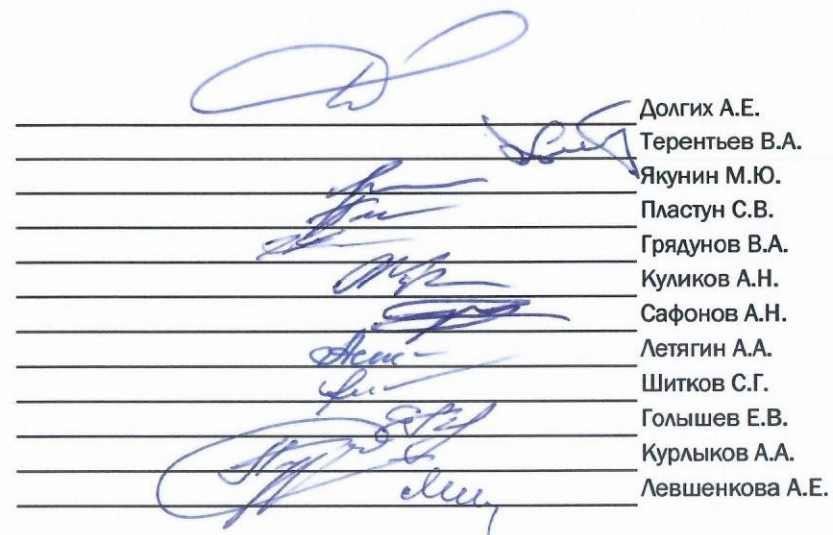 Долгих А.Е.
Терентьев В.А.
Якунин М.Ю.
Пластун С.В.
Грядунов В.А.
Куликов А.Н.
Сафонов А.Н.
Летягин А.А.
Шитков С.Г.
Голышев Е.В.
Курлыков А.А.
Левшенкова А.Е.